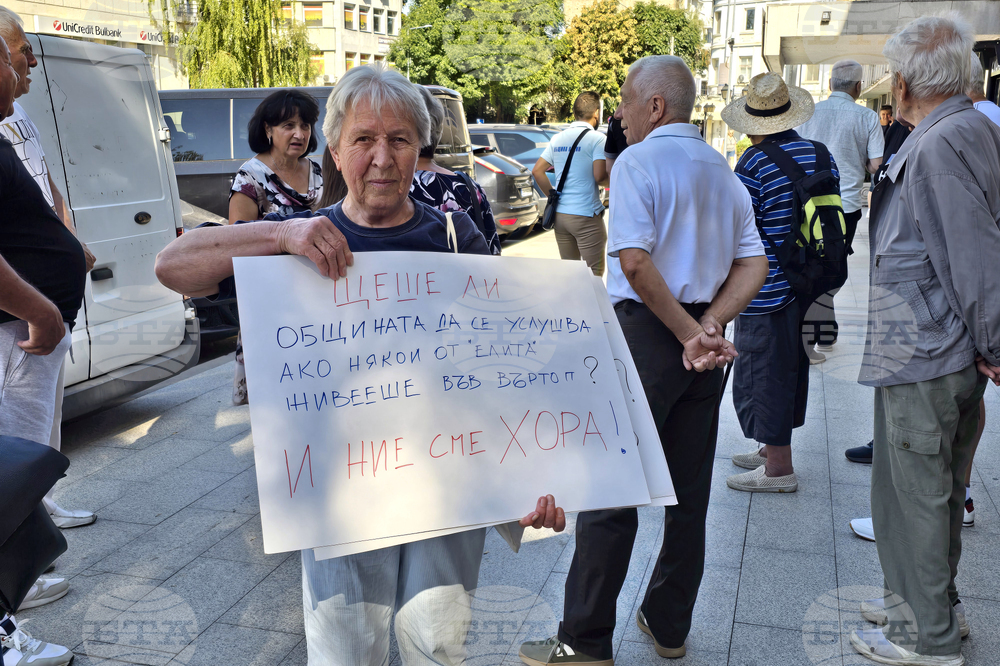 UniCredit Bulbank
ЩЕШЕ ЛИ
ОБЩИНАТА ДА СЕ УСЛУШВА -
АКО НЯКОЙ ОТ "ЕЛИТА"
ЖИВЕЕШЕ ВЪВ ВЪРТОП?
И НИЕ СМЕ ХОРА!
БТА